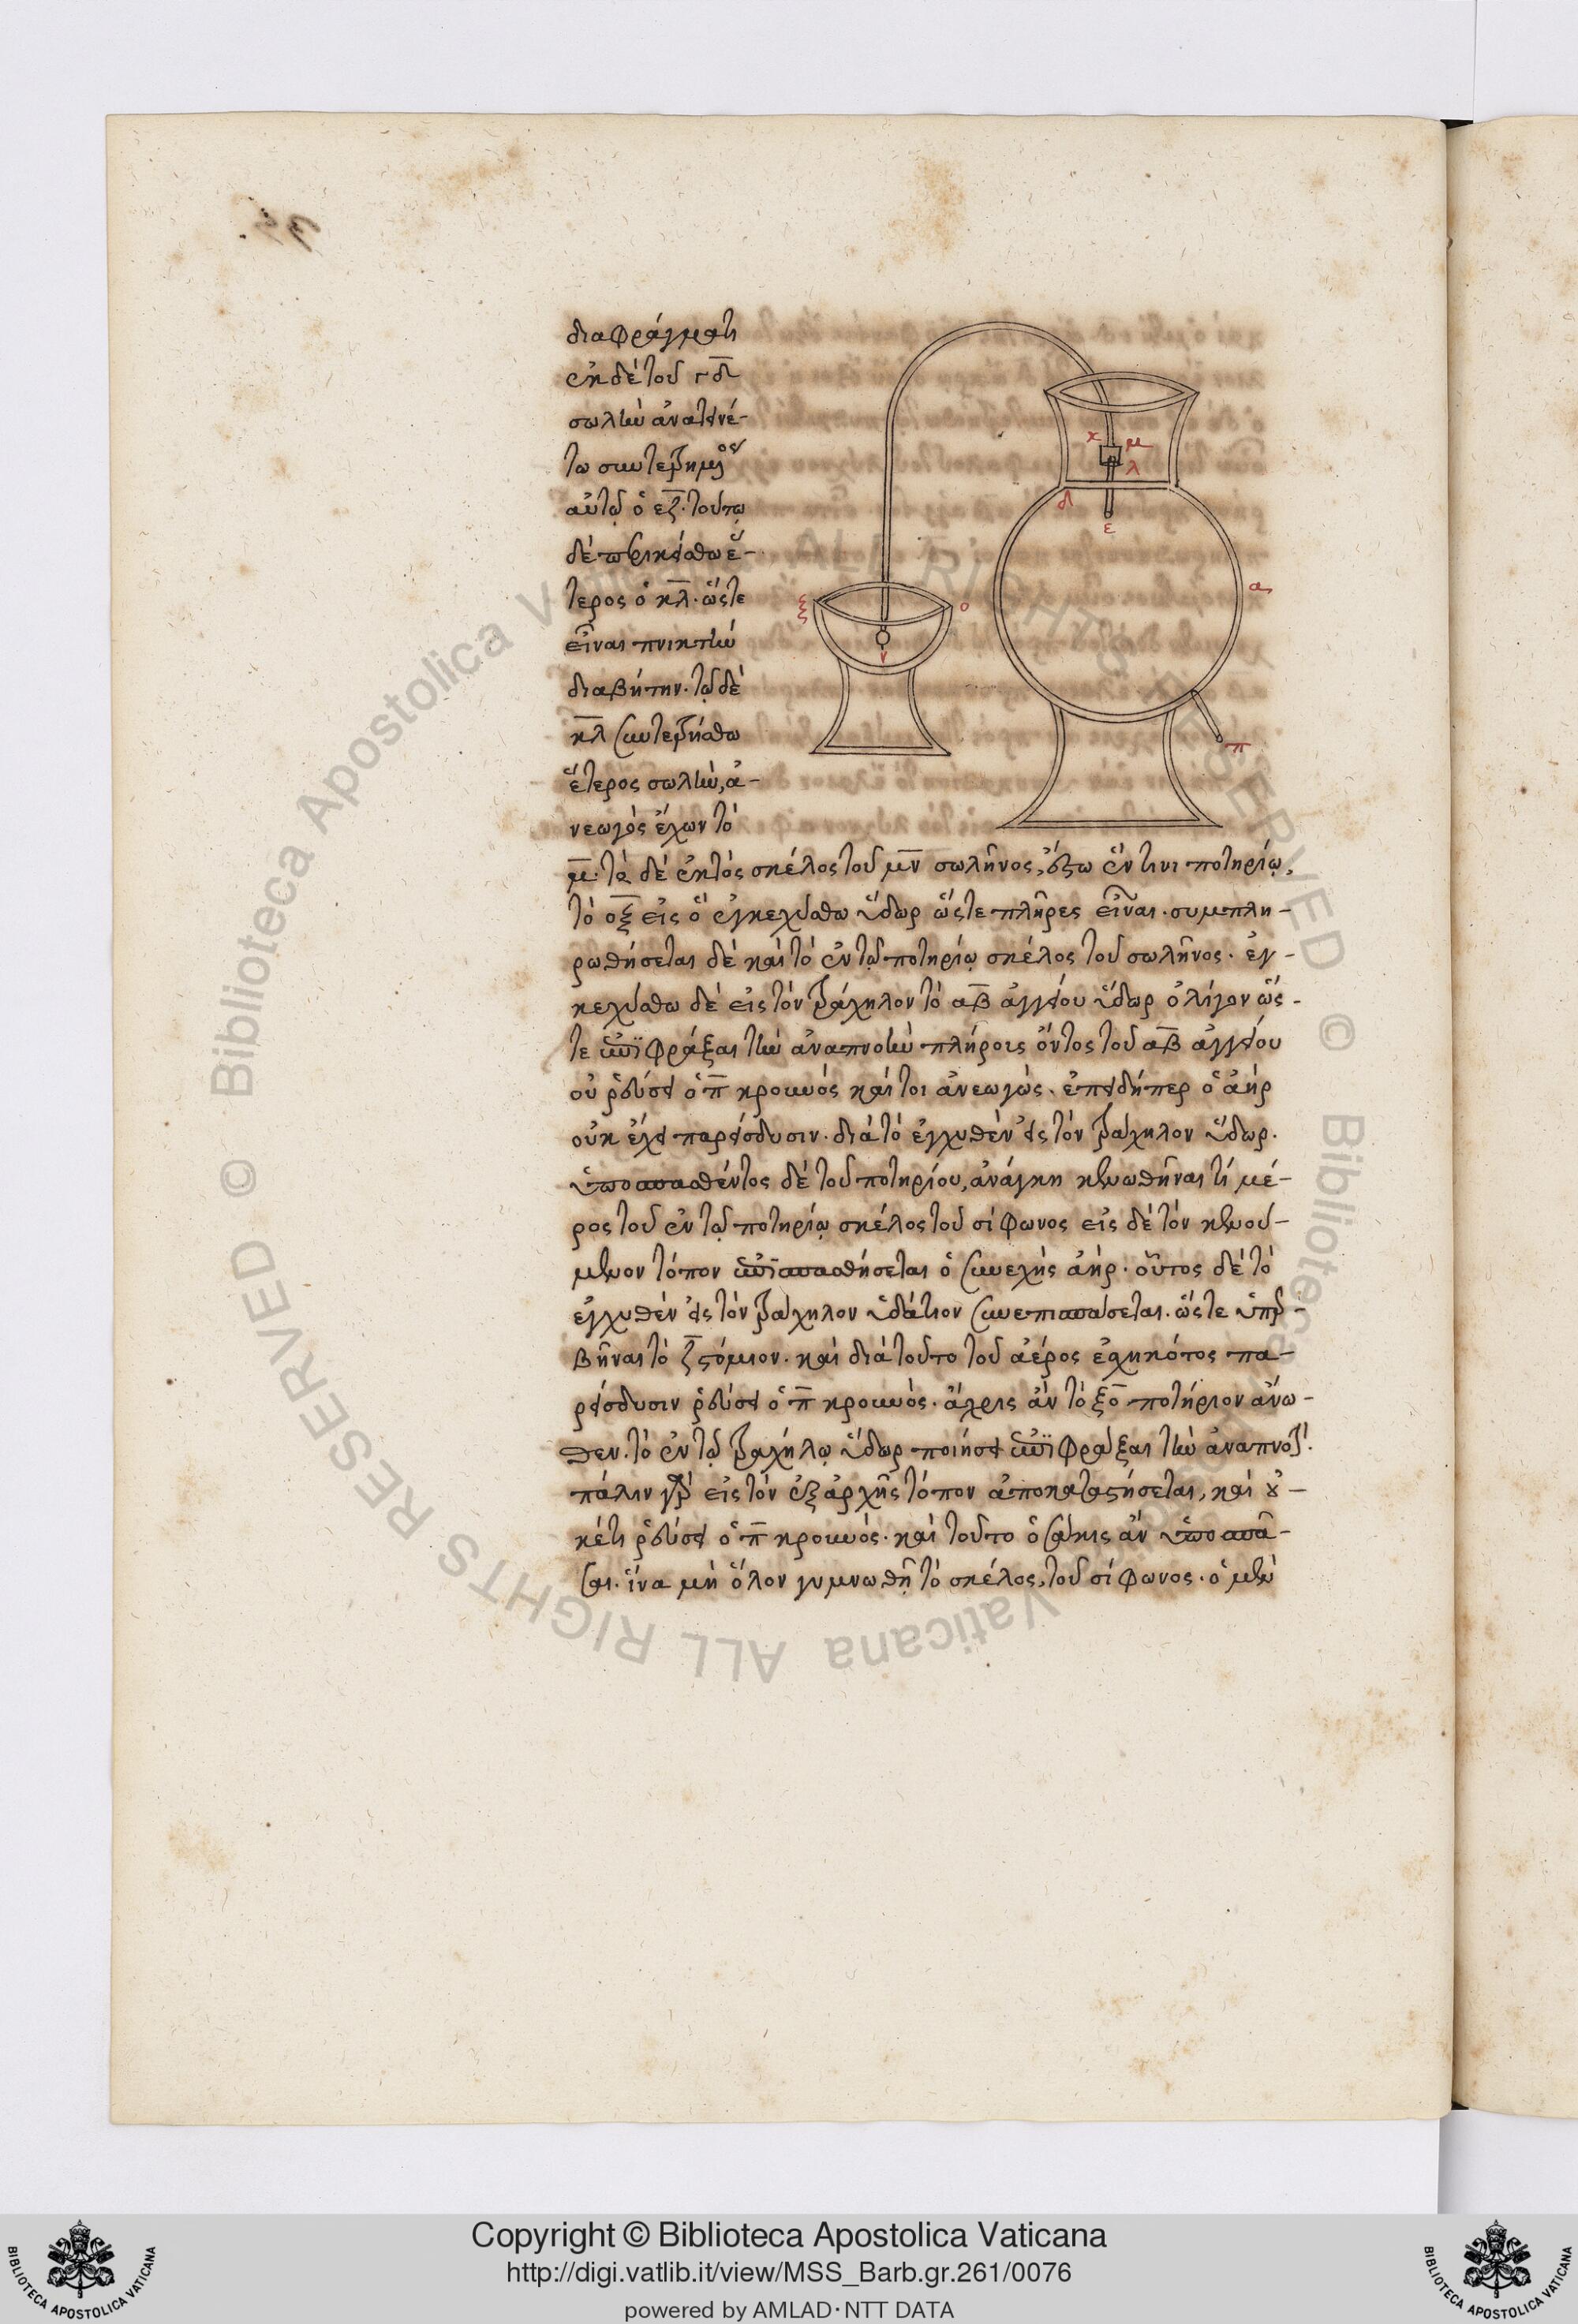 διαφράγματι
ἐκ δὲ τοῦ γ̅δ̅
σωλὴν ἀνατεινέ-
τω συντετρημένος
αὐτῷ ὁ ε̅ζ̅· τούτῳ
δὲ περικείσθω ἕ-
τερος ὁ κ̅λ̅· ὥστε
εἶναι πνικτὸν
διαβήτην· τῷ δὲ
κ̅λ̅ συντετρήσθω
ἕτερος σωλὴν, ἀ-
νεωγὸς ἔχων τὸ
μ̅· τὸ δὲ ἐκτὸς σκέλος τοῦ μ̅ν̅ σωλῆνος, ἔστω ἔν τινι ποτηρίῳ,
τὸ ο̅ξ̅ εἰς ὃ ἐγκεχύσθω ὕδωρ ὥστε πλῆρες εἶναι· συμπλη-
ρωθήσεται δὲ καὶ τὸ ἐν τῷ ποτηρίῳ σκέλος τοῦ σωλῆνος· ἐγ-
κεχύσθω δὲ εἰς τὸν τράχηλον τὸ α̅β̅ ἀγγείου ὕδωρ ὀλίγον ὥσ-
τε ἐπιφράξαι τὴν ἀναπνοὴν πλήροις ὄντος τοῦ α̅β̅ ἀγγείου
οὐ ῥεύσει ὁ π̅ κρουνός καί τοι ἀνεωγὼς· ἐπειδήπερ ὁ ἀὴρ
οὐκ ἔχει παρείσδυσιν· διὰ τὸ ἐγχυθὲν εἰς τὸν τράχηλον ὕδωρ·
ὑποσπασθέντος δὲ τοῦ ποτηρίου, ἀνάγκη κενωθῆναι τί μέ-
ρος τοῦ ἐν τῷ ποτηρίῳ σκέλος τοῦ σίφωνος εἰς δὲ τὸν κενού-
μενον τόπον ἐπισπασθήσεται ὁ συνεχὴς ἀήρ· οὗτος δὲ τὸ
ἐγχυθὲν εἰς τὸν τράχηλον ὑδάτιον συνεπισπάσεται· ὥστε ὑπερ-
βῆναι τὸ ζ̅ στόμιον· καὶ διὰ τοῦτο τοῦ ἀέρος ἐσχηκότος πα-
ρείσδυσιν ῥεύσει ὁ π̅ κρουνὸς· ἄχρις ἂν τὸ ξ̅ο̅ ποτήριον ἄνω-
θεν· τὸ ἐν τῷ τραχήλῳ ὕδωρ ποιήσει ἐπιφράξαι τὴν ἀναπνοήν·
πάλιν γὰρ εἰς τὸν ἐξ ἀρχῆς τόπον ἀποκαταστήσεται, καὶ οὐ-
κέτι ῥεύσει ὁ π̅ κρουνός· καὶ τοῦτο ὁσάκις ἂν ὑποσπᾶ-
σαι· ἵνα μὴ ὅλον γυμνωθῇ τὸ σκέλος, τοῦ σίφωνος· ὁ μὲν
κ
μ
λ
δ
ε
α
ξ
ο
ν
π
Copyright © Biblioteca Apostolica Vaticana
http://digi.vatlib.it/view/MSS_Barb.gr.261/0076
powered by AMLAD·NTT DATA
BIBLIOTECA APOSTOLICA VATICANA
BIBLIOTECA APOSTOLICA VATICANA
© Biblioteca Apostolica Vaticana ALL RIGHTS RESERVED © Biblioteca Apostolica Vaticana ALL RIGHTS RESERVED